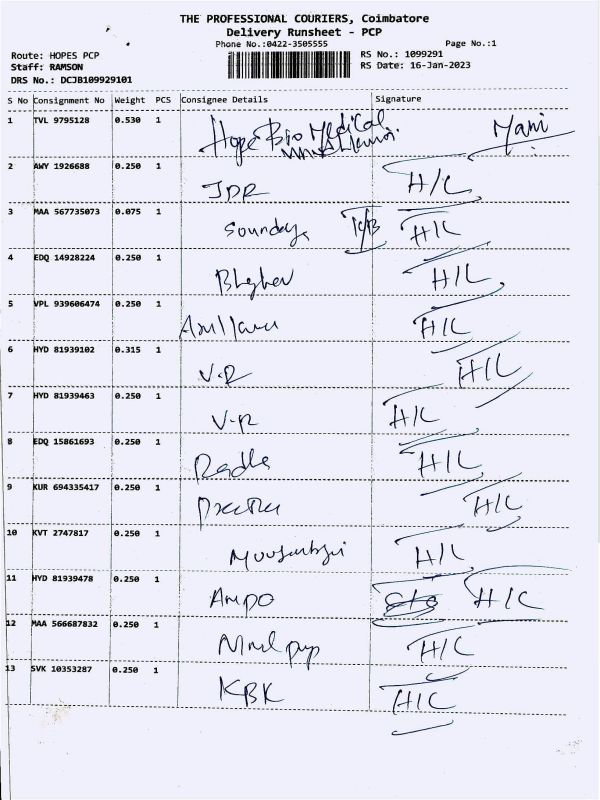 THE PROFESSIONAL COURIERS, Coimbatore
Delivery Runsheet - PCP
Phone No.:0422-3505555 Page No.:1
Route: HOPES PCP RS No.: 1099291
Staff: RAMSON RS Date: 16-Jan-2023
DRS No.: DCJB109929101
S No Consignment No Weight PCS Consignee Details Signature
1 TVL 9795128 0.530 1 Hope Bio Medical Mani
2 AWY 1926688 0.250 1 JDR H/C
3 MAA 567735073 0.075 1 H/C
4 EDQ 14928224 0.250 1 H/C
5 VPL 939606474 0.250 1 H/C
6 HYD 81939102 0.315 1 V.R H/C
7 HYD 81939463 0.250 1 V.R H/C
8 EDQ 15861693 0.250 1 Radha H/C
9 KUR 694335417 0.250 1 H/C
10 KVT 2747817 0.250 1 H/C
11 HYD 81939478 0.250 1 Ampo H/C
12 MAA 566687832 0.250 1 H/C
13 SVK 10353287 0.250 1 KBK H/C